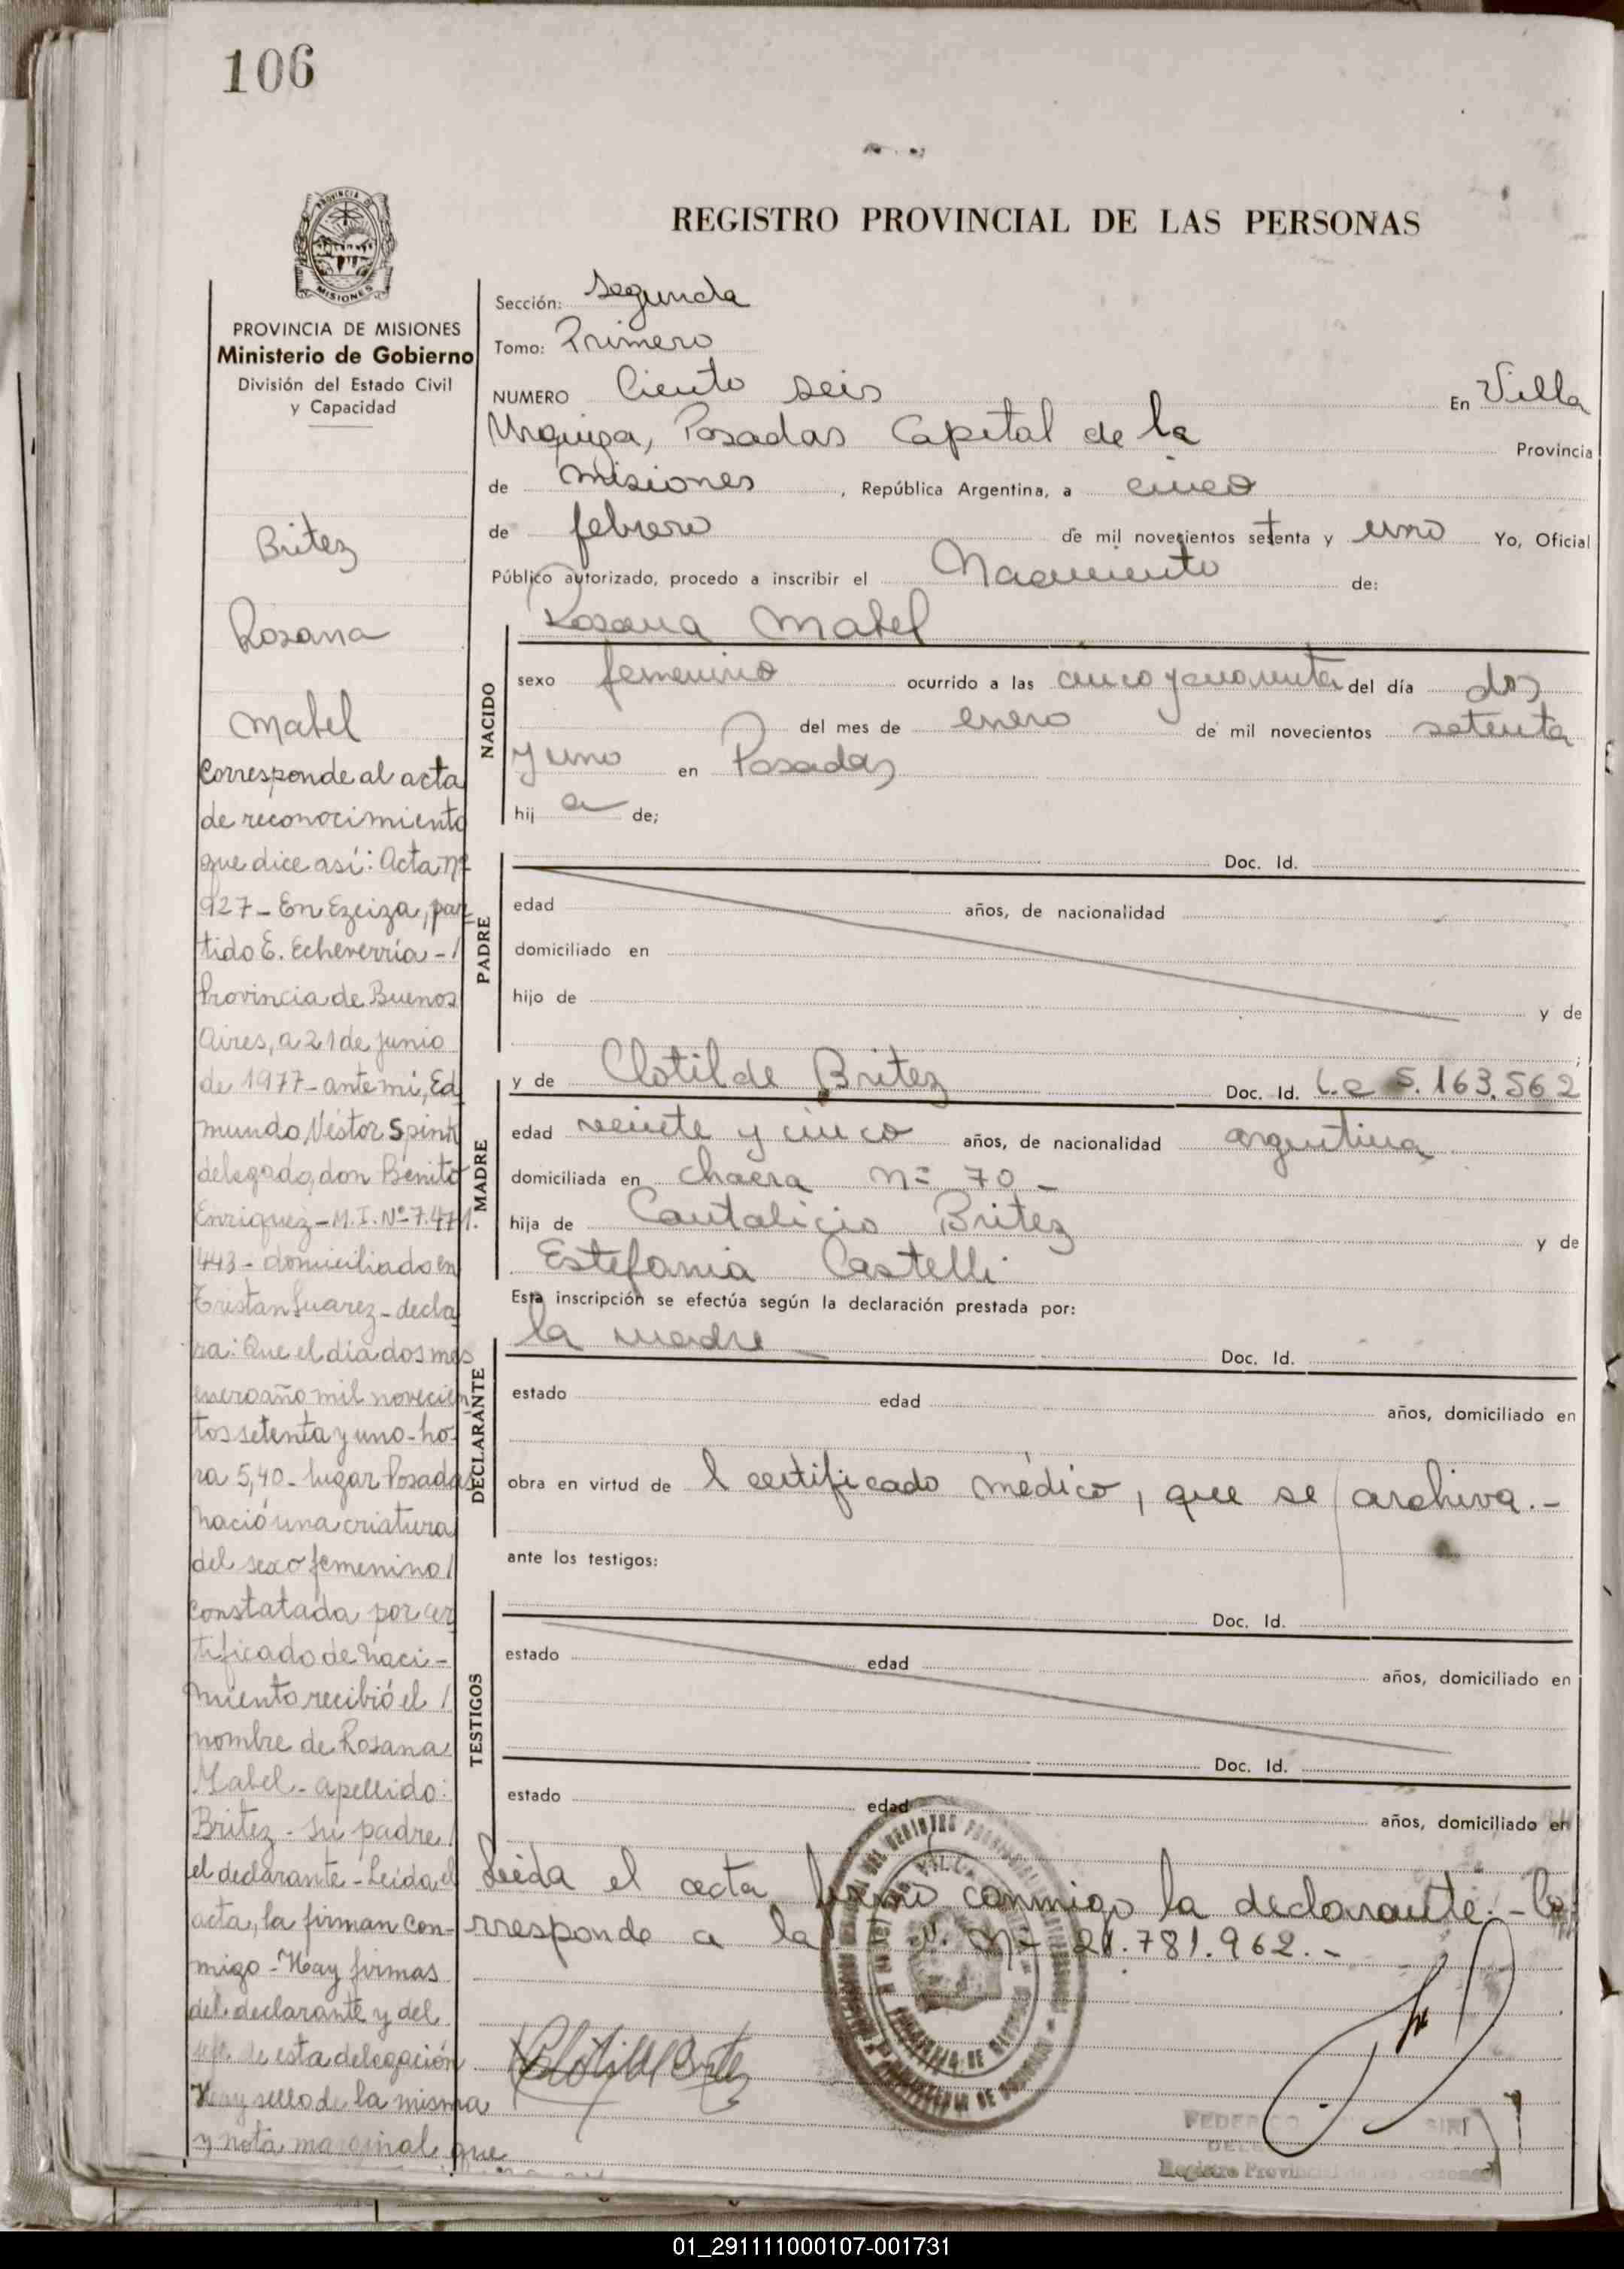 106
REGISTRO PROVINCIAL DE LAS PERSONAS
PROVINCIA DE
MISIONES
PROVINCIA DE MISIONES
Ministerio de Gobierno
División del Estado Civil
y Capacidad
Britez
Rosana
Mabel
Corresponde al acta
de reconocimiento
que dice así: Acta nº
927 - En Ezeiza, par
tido E. Echeverría - /
Provincia de Buenos
Aires, a 21 de junio
de 1977 - ante mi, Ed
mundo Néstor Spink
delegado, don Benito
Enriquez - M.I. Nº 7.471.
443 - domiciliado en
Tristan Suarez - decla
ra: Que el día dos mes
enero año mil novecien
tos setenta y uno - ho
ra 5,40 - lugar Posadas
nació una criatura
del sexo femenino /
constatada por cer
tificado de naci-
miento recibió el /
nombre de Rosana
Mabel - apellido:
Britez - su padre /
el declarante - Leída el
acta, la firman con-
migo - Hay firmas
del declarante y del
de esta delegación
Hay sello de la misma
y nota marginal que
Sección: Segunda
Tomo: Primero
NUMERO Ciento seis En Villa
Urquiza, Posadas Capital de la Provincia
de Misiones, República Argentina, a cinco
de febrero de mil novecientos setenta y uno Yo, Oficial
Público autorizado, procedo a inscribir el Nacimiento de:
Rosana Mabel
NACIDO
sexo femenino ocurrido a las cinco y cuarenta del día dos
del mes de enero de mil novecientos setenta
y uno en Posadas
hij a de;
PADRE
Doc. Id.
edad años, de nacionalidad
domiciliado en
hijo de y de
MADRE
y de Clotilde Britez Doc. Id. L.C 5.163.562
edad veinte y cinco años, de nacionalidad argentina
domiciliada en chacra nº 70 -
hija de Cantalicio Britez y de
Estefania Castelli
Esta inscripción se efectúa según la declaración prestada por:
DECLARANTE
la madre - Doc. Id.
estado edad años, domiciliado en
obra en virtud de l certificado médico, que se archiva.-
ante los testigos:
TESTIGOS
Doc. Id.
estado edad años, domiciliado en
Doc. Id.
estado edad años, domiciliado en
Leída el acta, firmó conmigo la declarante. - Co
rresponde a la Nº 21.781.962. -
Clotilde Britez
FEDERICO
Registro Provincial
01_291111000107-001731